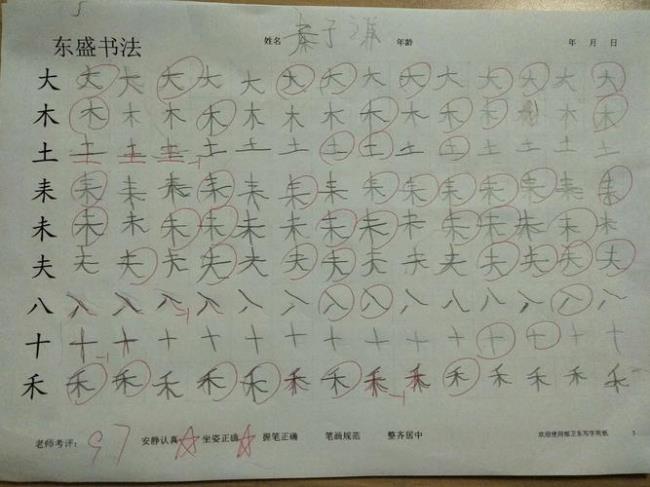 东盛书法 姓名 秦子谦 年龄 年 月 日
大 大 大 大 大 大 大 大 大 大 大 大 大 大 大
木 木 木 木 木 木 木 木 木 木 木 木 木 木 木
土 土 土 土 -1 土 土 土 土 土 土 土 土 土 土 土
耒 耒 耒 耒 耒 耒 耒 耒 耒 耒 耒 耒 耒 耒 耒
未 未 未 未 未 未 未 未 未 未 未 未 未 未 未
夫 夫 夫 夫 夫 夫 夫 夫 夫 夫 夫 夫 夫 夫 夫
八 八 八 八 -1 八 八 八 八 八 八 八 八 八 八 八
十 十 -1 十 十 十 十 十 十 十 十 十 十 十 十 十
禾 禾 禾 禾 禾 禾 禾 禾 禾 -1 禾 禾 禾 禾 禾 禾
老师考评: 97 安静认真 坐姿正确 握笔正确 笔画规范 整齐居中